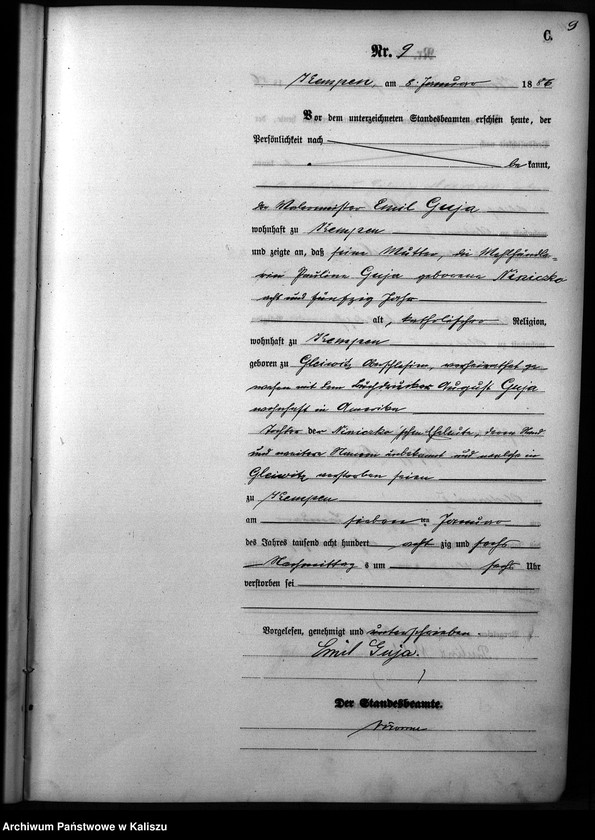 9
C.
Nr. 9
Kempen, am 8. Januar 1886
Vor dem unterzeichneten Standesbeamten erschien heute, der
Persönlichkeit nach
bekannt,
der Malermeister Emil Guja
wohnhaft zu Kempen
und zeigte an, daß seine Mutter, die Mehlhändle-
rin Pauline Guja geborene
acht und fünfzig Jahr
alt, katholischer Religion,
wohnhaft zu Kempen
geboren zu Gleiwitz Oberschlesien, verheirathet ge-
wesen mit dem Buchdrucker August Guja
wohnhaft in Amerika
Tochter der schen Eheleute, deren Stand
und weitere Namen unbekannt und welche in
Gleiwitz verstorben seien
zu Kempen
am sieben ten Januar
des Jahres tausend acht hundert acht zig und sechs
Nachmittag s um sechs Uhr
verstorben sei
Vorgelesen, genehmigt und unterschrieben.
Emil Guja.
Der Standesbeamte.
Archiwum Państwowe w Kaliszu